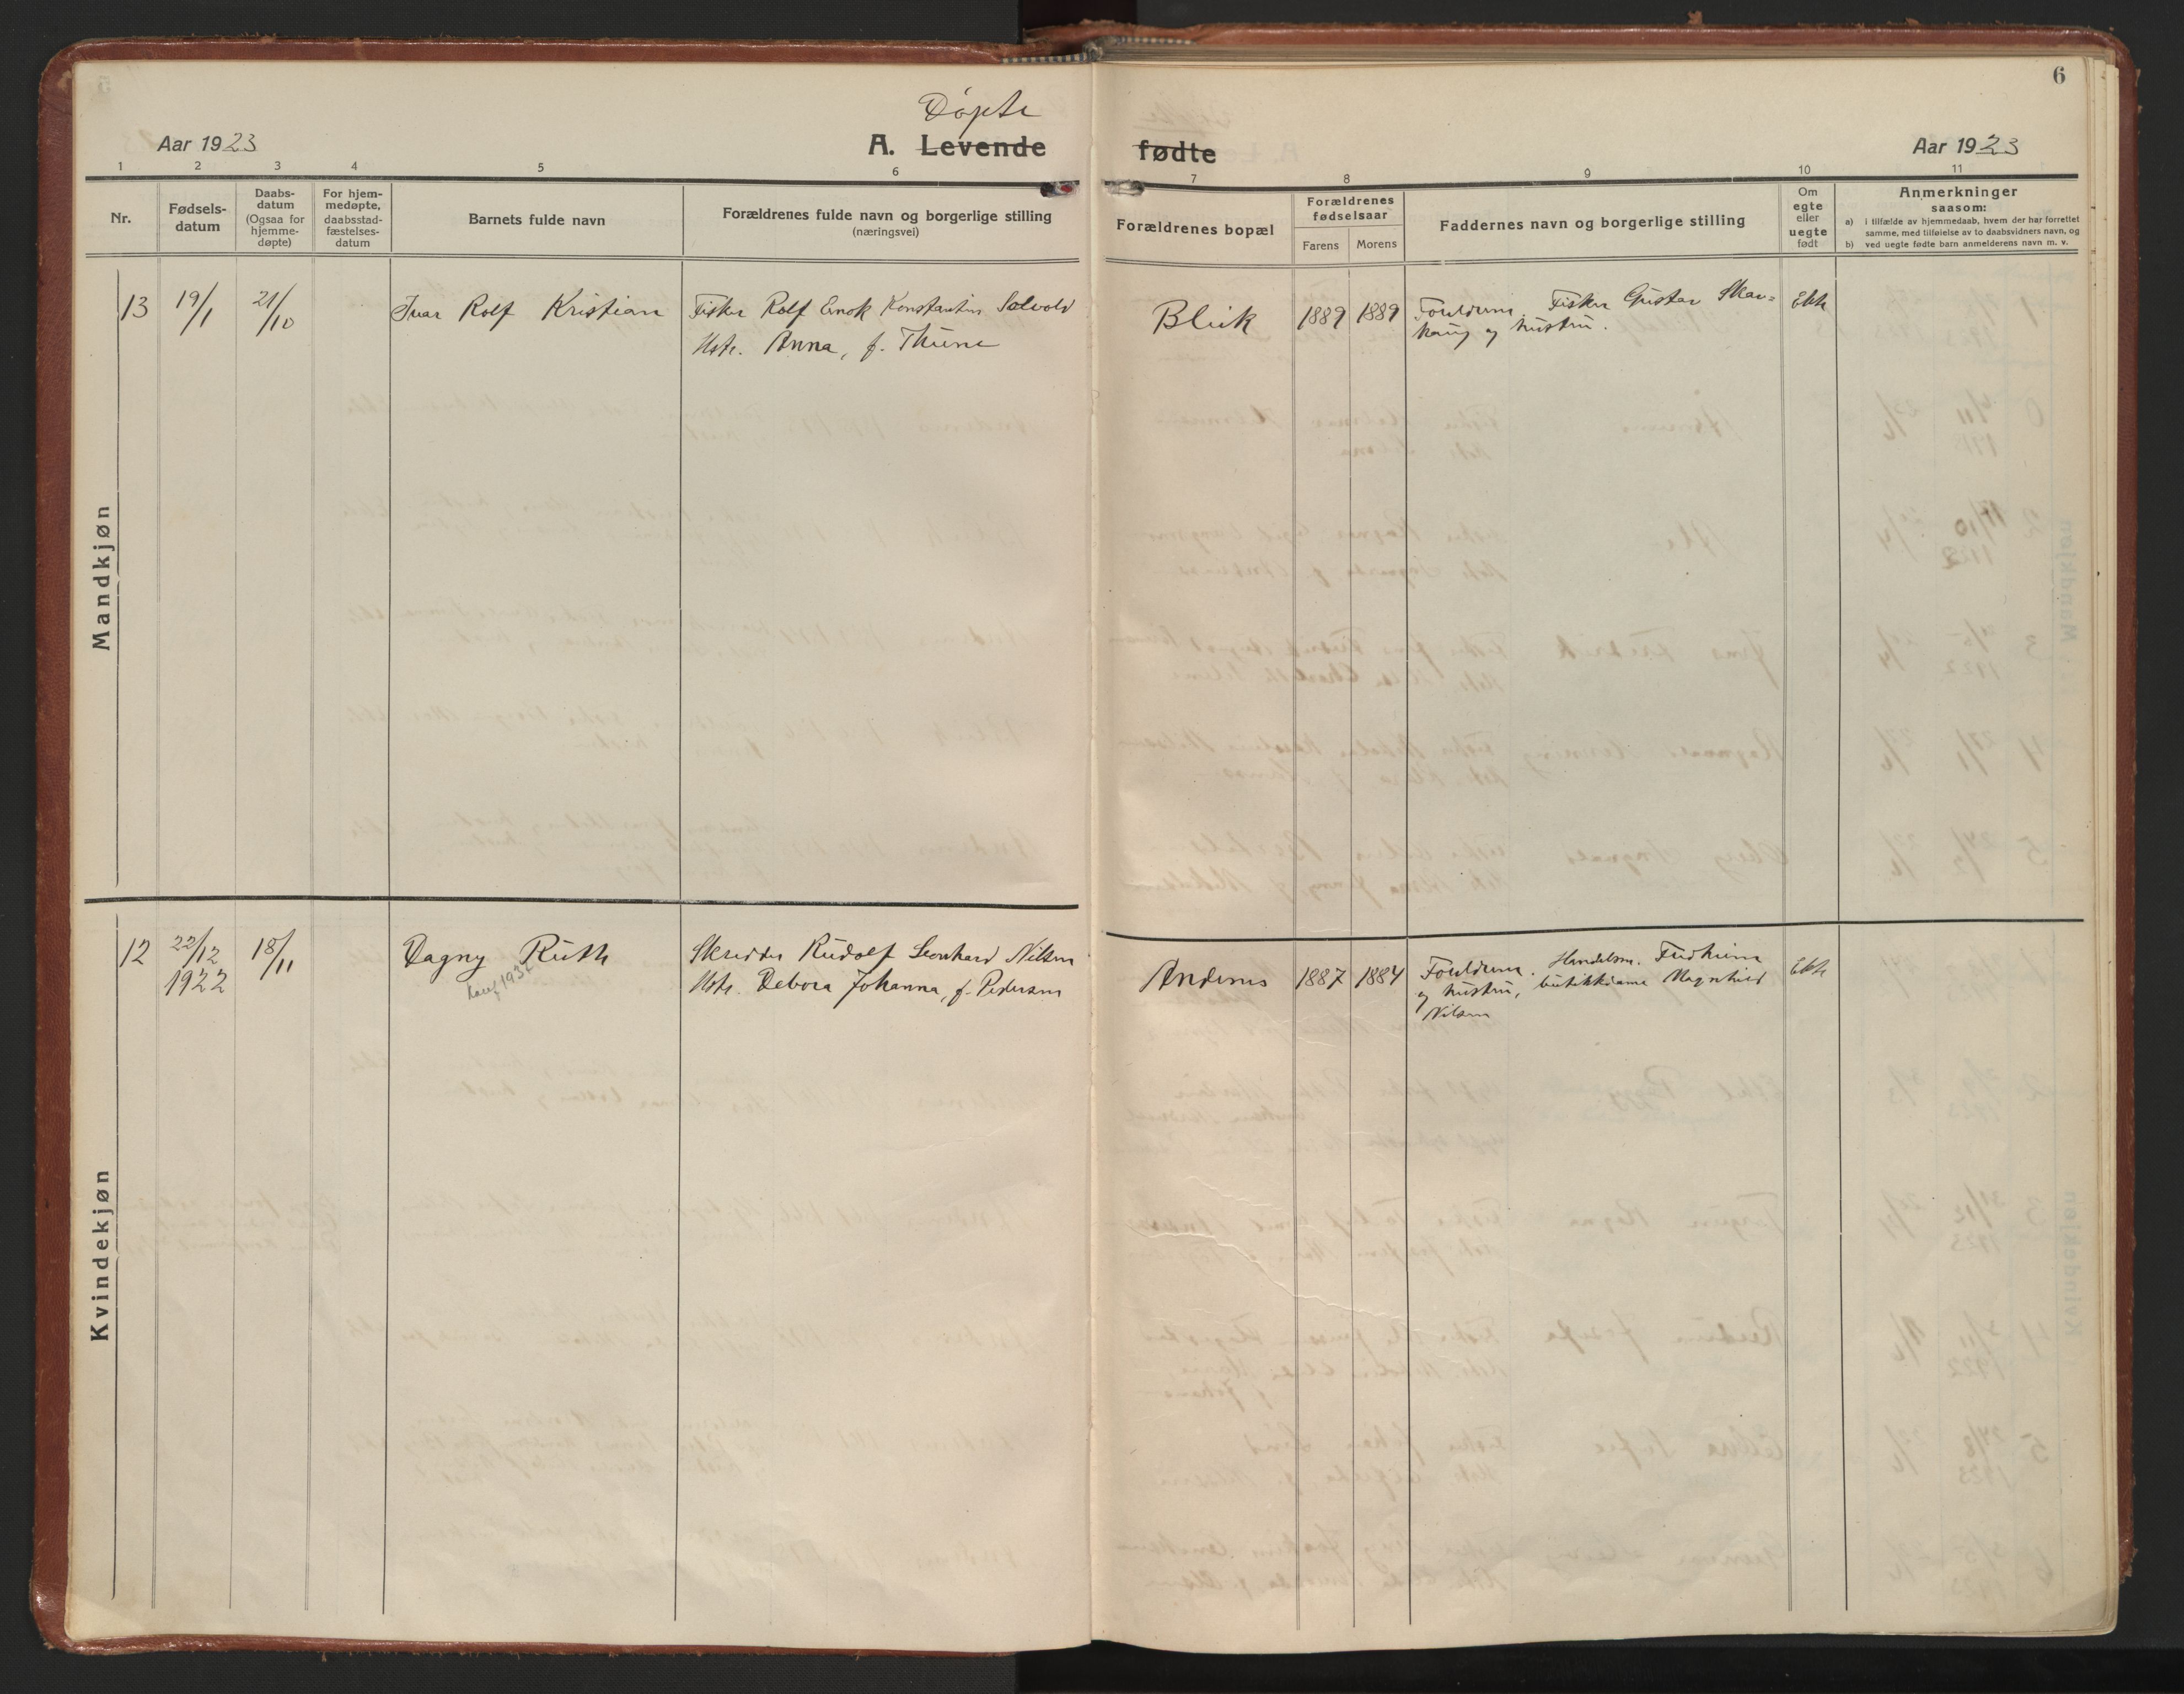 6
Døpte
Aar 1923
A. Levende
fødte
Aar 1923
1 2 3 4 5 6 7 8 9 10 11
Nr.
Fødsels-
datum
Daabs-
datum
(Ogsaa for
hjemme-
døpte)
For hjem-
medøpte,
daabsstad-
fæstelses-
datum
Barnets fulde navn
Forældrenes fulde navn og borgerlige stilling
(næringsvei)
Forældrenes bopæl
Forældrenes
fødselsaar
Farens Morens
Faddernes navn og borgerlige stilling
Om
egte
eller
uegte
født
Anmerkninger
saasom:
a) i tilfælde av hjemmedaab, hvem der har forrettet
samme, med tilføielse av to daabsvidners navn, og
b) ved uegte fødte barn anmelderens navn m. v.
Mandkjøn
13 19/1 21/10 Ivar Rolf Kristian Fisker Rolf Enok Konstantin Solvold
Hstr. Anna, f. Thune
Bleik 1889 1889 Foreldrene, Fisker Gustav Skar=
haug og hustru.
Ekte
Kvindekjøn
12 22/12
1922
18/11 Dagny Ruth
konf. 1937
Skredder Rudolf Leonhard Nilsen
Hstr. Debora Johanna, f. Pedersen
Andenes 1887 1884 Foreldrene. Handelsm. Fredheim
og hustru, butikkdame Magnhild
Nilsen
Ekte